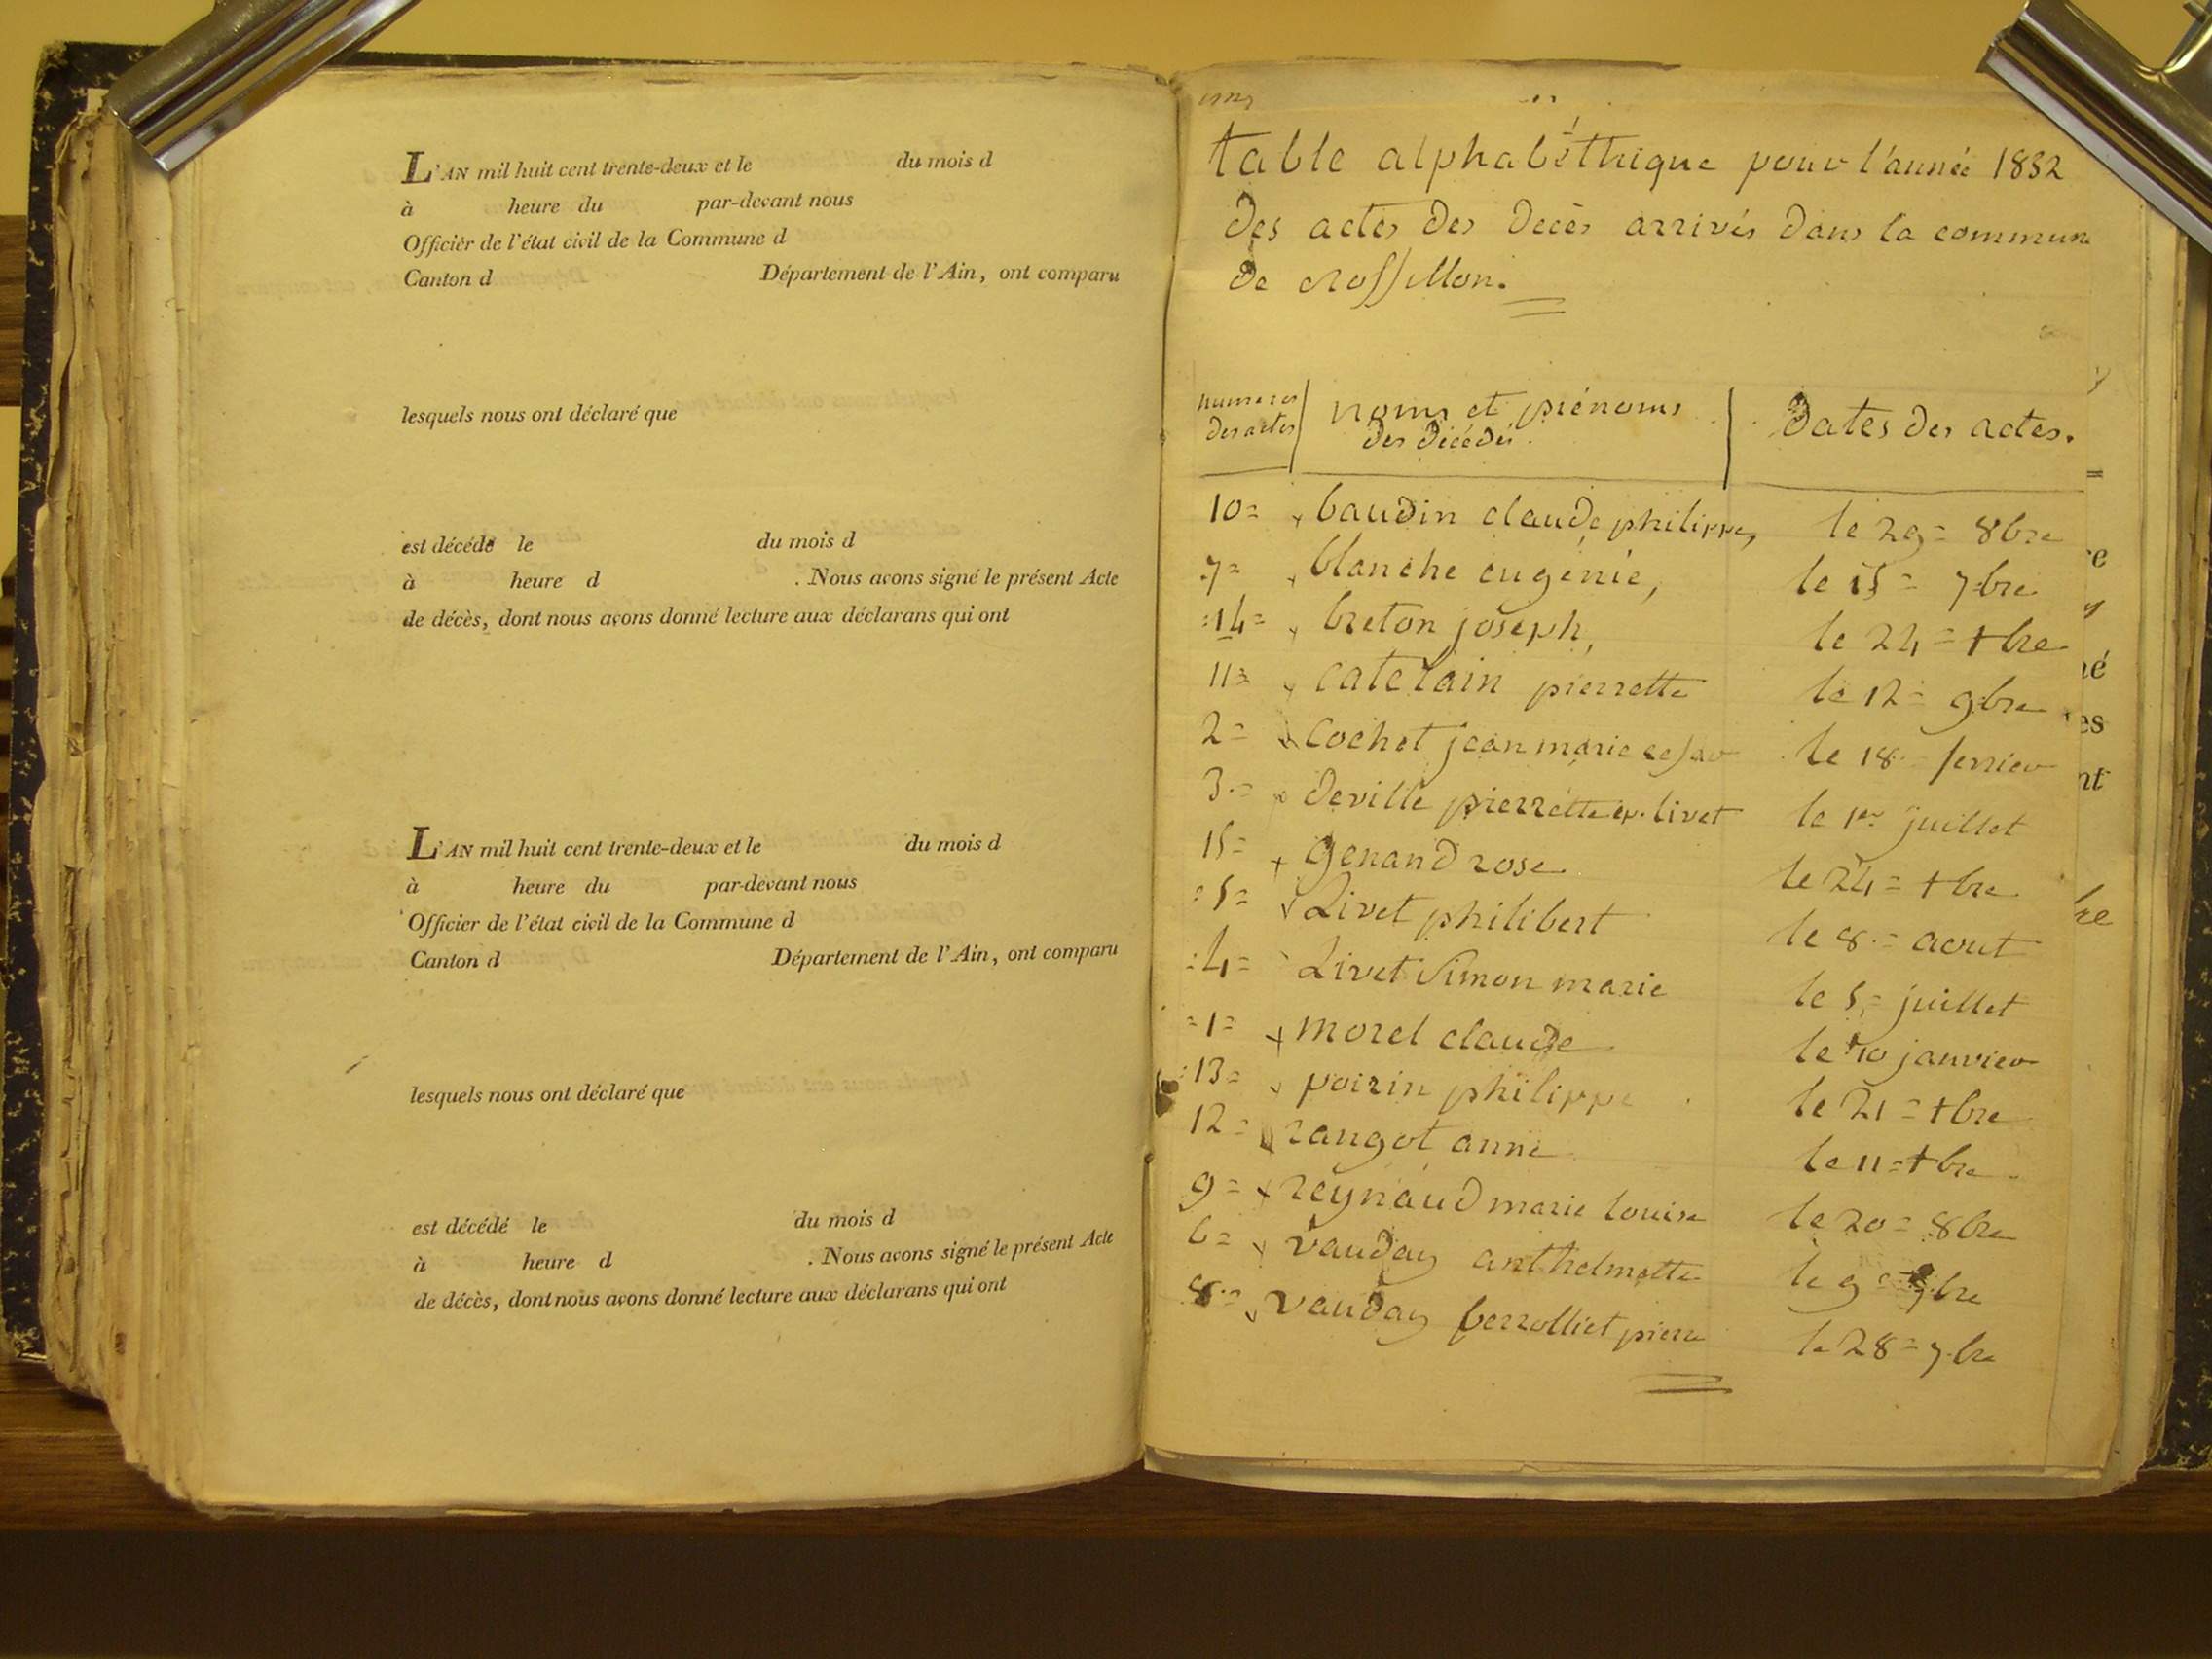 L'AN mil huit cent trente-deux et le du mois d
à heure du par-devant nous
Officier de l'état civil de la Commune d
Canton d Département de l'Ain, ont comparu
lesquels nous ont déclaré que
est décédé le du mois d
à heure d . Nous avons signé le présent Acte
de décès, dont nous avons donné lecture aux déclarans qui ont
L'AN mil huit cent trente-deux et le du mois d
à heure du par-devant nous
Officier de l'état civil de la Commune d
Canton d Département de l'Ain, ont comparu
lesquels nous ont déclaré que
est décédé le du mois d
à heure d . Nous avons signé le présent Acte
de décès, dont nous avons donné lecture aux déclarans qui ont
table alphabéthique pour l'année 1832
des actes des décès arrivés dans la commune
de rossillon.
numeros des actes noms et prénoms des décédés. dates des actes.
10= baudin claude philippe, le 29= 8bre
7= blanche eugenie, le 15= 7bre
14= breton joseph, le 24= +bre
11= catelain pierrette le 12= 9bre
2= Cochet jean marie le 18 fevrier
3= deville pierrette ep. livet le 1er juillet
15= genand rose le 24= +bre
5= Livet philibert le 8= aout
4= Livet Simon marie le 5= juillet
=1= morel claude le 10 janvier
13= poirin philippe le 21= +bre
12= rangot anne le 11= +bre
9= reynaud marie louise le 20= 8bre
6= vauday anthelmette le 9= 7bre
8= vauday perrolliet pierre le 28= 7bre